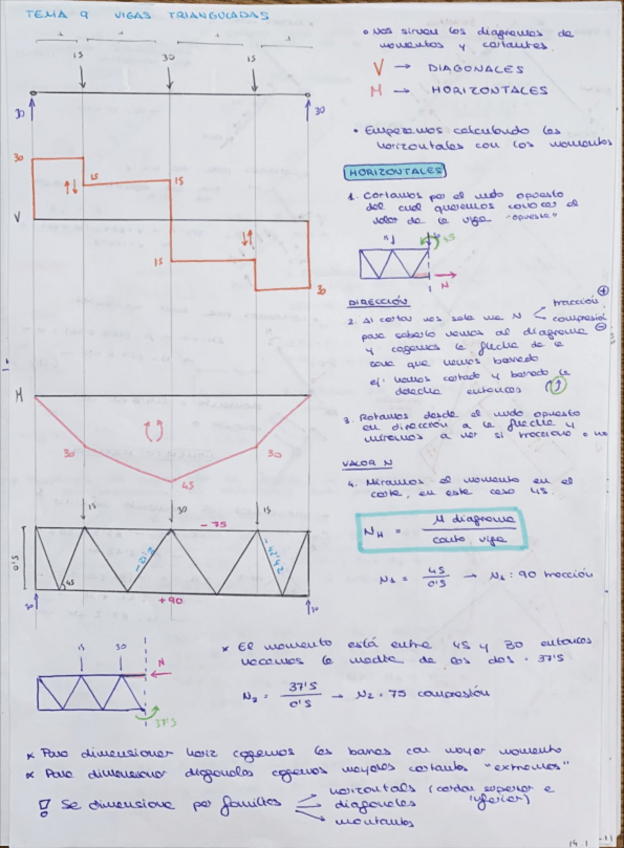 TEMA 9 VIGAS TRIANGULADAS
15 30 15
30 30
30
15
15
V
15
30
M
30
45
30
15 30 15
- 75
0'5
45
- 42'42
+90
30 30
• Nos sirven los diagramas de
momentos y cortantes.
V → DIAGONALES
M → HORIZONTALES
• Empezamos calculando las
horizontales con los momentos
HORIZONTALES
1. Cortamos por el nudo opuesto
del cual queremos conocer el
valor de la viga "opuesta"
45
N
DIRECCIÓN
2. Al cortar nos sale una N tracción +
compresión -
para saberlo vamos al diagrama
y cogemos la flecha de la
zona que hemos borrado
ej' hemos cortado y borrado la
derecha entonces
3. Rotamos desde el nudo opuesto
en dirección a la flecha y
miramos a ver si tracciona o no
VALOR N
4. Miramos el momento en el
corte, en este caso 45.
N_H = M diagrama / canto viga
N₁ = 45 / 0'5 → N₁ : 90 tracción
15 30
N
37'5
* El momento está entre 45 y 30 entonces
hacemos la media de los dos = 37'5
N₂ = 37'5 / 0'5 → N₂ = 75 compresión
* Para dimensionar horiz cogemos las barras con mayor momento
* Para dimensionar diagonales cogemos mayores cortantes "extremos"
! Se dimensiona por familias
horizontals (cordon superior e
inferior)
diagonales
montantes
14.1